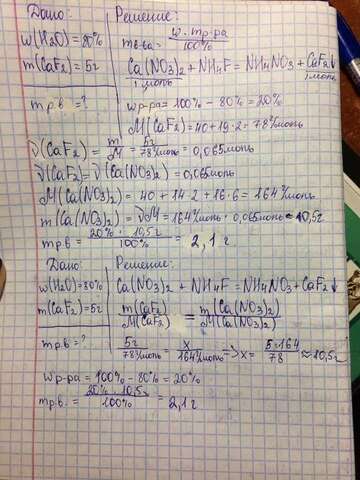 Дано:
w(H2O) = 80%
m(CaF2) = 5г
mр.в = ?
Решение:
mв-ва = w · mр-ра / 100%
Ca(NO3)2 + NH4F = NH4NO3 + CaF2↓
1моль 1моль
wр-ра = 100% - 80% = 20%
M(CaF2) = 40 + 19·2 = 78г/моль
ν(CaF2) = m/M = 5г / 78г/моль = 0,065моль
ν(CaF2) = ν(Ca(NO3)2) = 0,065моль
M(Ca(NO3)2) = 40 + 14·2 + 16·6 = 164г/моль
m(Ca(NO3)2) = νM = 164г/моль · 0,065моль = 10,5г
mр.в = 20% · 10,5г / 100% = 2,1г
Дано:
w(H2O) = 80%
m(CaF2) = 5г
mр.в. = ?
Решение:
Ca(NO3)2 + NH4F = NH4NO3 + CaF2↓
m(CaF2) / M(CaF2) = m(Ca(NO3)2) / M(Ca(NO3)2)
5г / 78г/моль = x / 164г/моль => x = 5·164 / 78 ≈ 10,5г
wр-ра = 100% - 80% = 20%
mр.в. = 20% · 10,5г / 100% = 2,1г